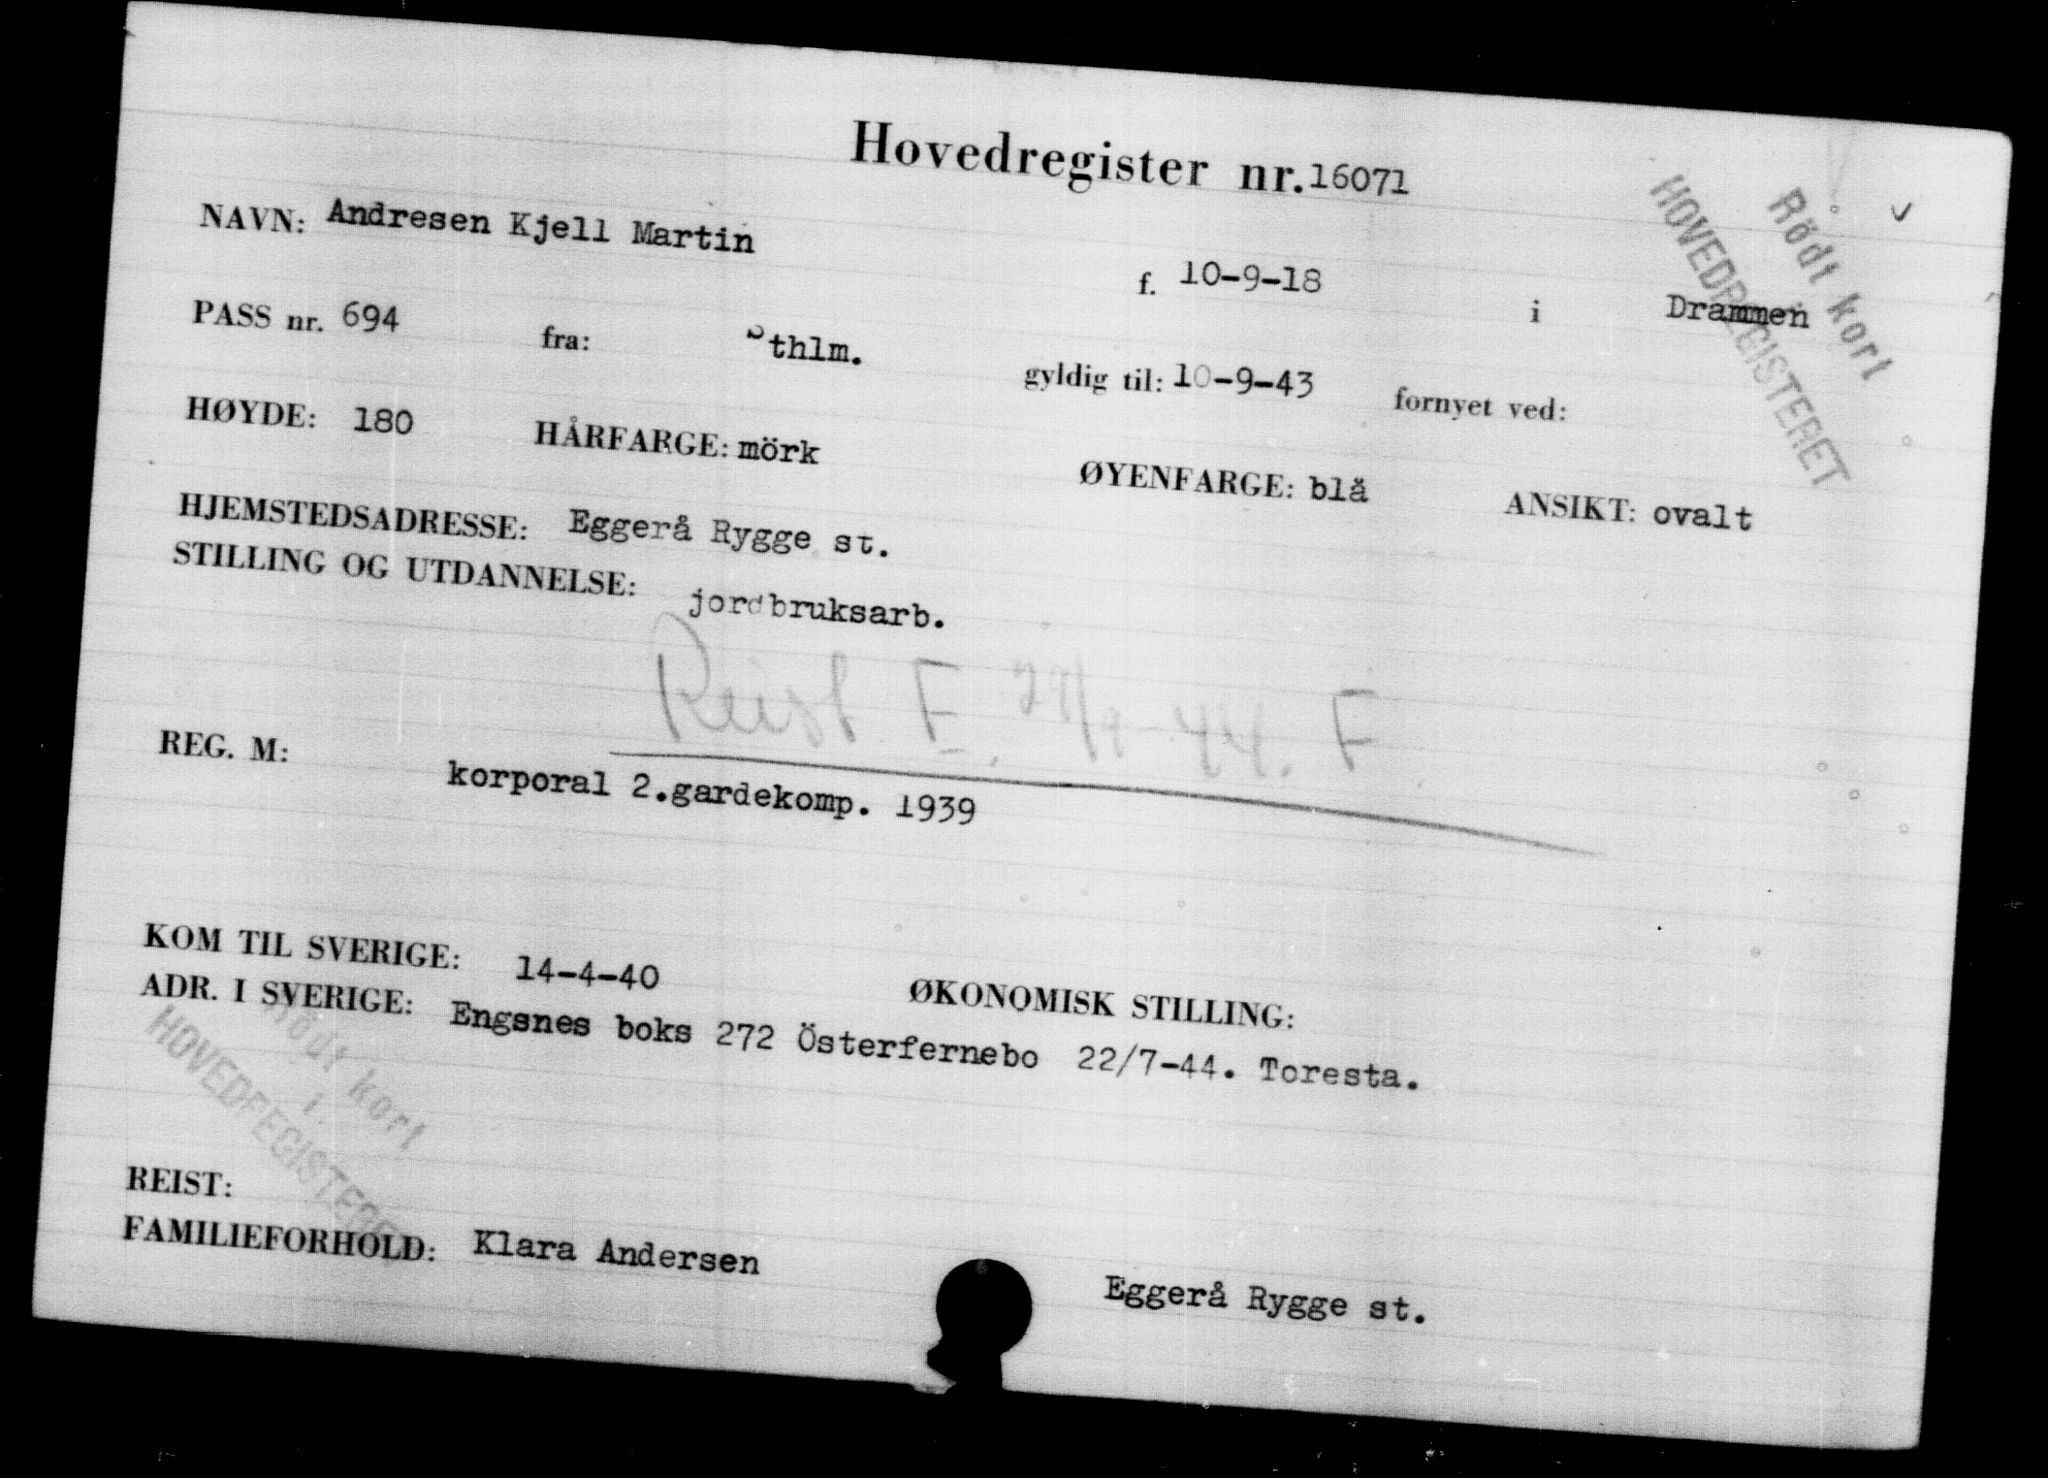 Hovedregister nr. 16071
NAVN: Andresen Kjell Martin f. 10-9-18 i Drammen
PASS nr. 694 fra: Sthlm. gyldig til: 10-9-43 fornyet ved:
HØYDE: 180 HÅRFARGE: mörk ØYENFARGE: blå ANSIKT: ovalt
HJEMSTEDSADRESSE: Eggerå Rygge st.
STILLING OG UTDANNELSE: jordbruksarb.
Reist E. /9-44. F
REG. M: korporal 2.gardekomp. 1939
KOM TIL SVERIGE: 14-4-40 ØKONOMISK STILLING:
ADR. I SVERIGE: Engsnes boks 272 Österfernebo 22/7-44. Toresta.
REIST:
FAMILIEFORHOLD: Klara Andersen Eggerå Rygge st.
Rödt kort
i
HOVEDREGISTERET
Rödt kort
i
HOVEDREGISTERET